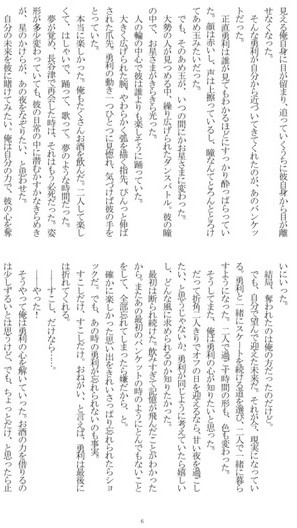 見える俺自身に目が留まり、追っていくうちに彼自身から目が離
せなくなった。
そんな勇利が自分から近づいてきてくれたのが、あのバンケッ
トだった。
正直勇利は誰が見てもわかるほどにすっかり酔っぱらってい
た。顔は赤いし、声は上擦っているし、瞳なんてとろんととろけ
てあめ玉みたいだった。
でも、そのあめ玉が、いつの間にかお星さまに変わった。
大勢の人が見つめる中、繰り広げられたダンスバトル。彼の瞳
の中で、お星さまがきらきら光った。
人の輪の中心で彼は誰よりも楽しそうに踊っていた。
大きく広げられた腕、やわらかく弧を描く指先、ぴんっと伸ば
された爪先。勇利の動き一つひとつに見惚れ、気づけば彼の手を
とっていた。
本当に楽しかった。俺もたくさんお酒を飲んだ。二人して楽し
くて、はしゃいで、踊って、歌って、夢のような時間だった。
夢が覚め、長谷津で再会した君は、それはもう必死だった。姿
形が多少変わっていても、彼の日常の中に潜むかすかなきらめき
が、星のかけらが、あの夜をなぞりたい、と思わせた。
自分の未来を彼に賭けてみたい、俺は自分の力で、彼の心を奪
いにいった。
結局、奪われたのは俺の方だったのだけど。
でも、自分で望んで迎えた未来だ。それが今、現実になってい
る。勇利と一緒にスケートを続ける道を選び、二人で一緒に暮ら
すようになった。二人で過ごす時間の形も、色も変わった。
そうしてまた、俺は勇利の心が知りたいと思った。
だって折角二人きりでオフの日を迎えるなら、甘い夜を過ごし
たい、と思うじゃないか。勇利が同じように考えていたら嬉しい
し、どんな風に求められるのか知りたかった。
最初は断られ続けた。飲みすぎて記憶が飛んだことがわかった
から。またあの最初のバンケットの時のようにとんでもないこと
をして、全部忘れてしまったら嫌だから、と。
確かに楽しかった思い出をきれいさっぱり忘れられたらショ
ックだ。でも、あの時の勇利が忘れられないのも事実。
すこしだけ、すこしだけ、おねがい、と言えば、勇利は最後に
は折れてくれる。
――すこし、だけなら……。
――やった！
そうやって俺は勇利の心を解いていった。お酒の力を借りるの
は少しずるいとは思うけど、でも、ちょっとだけ、と思ったら止
6